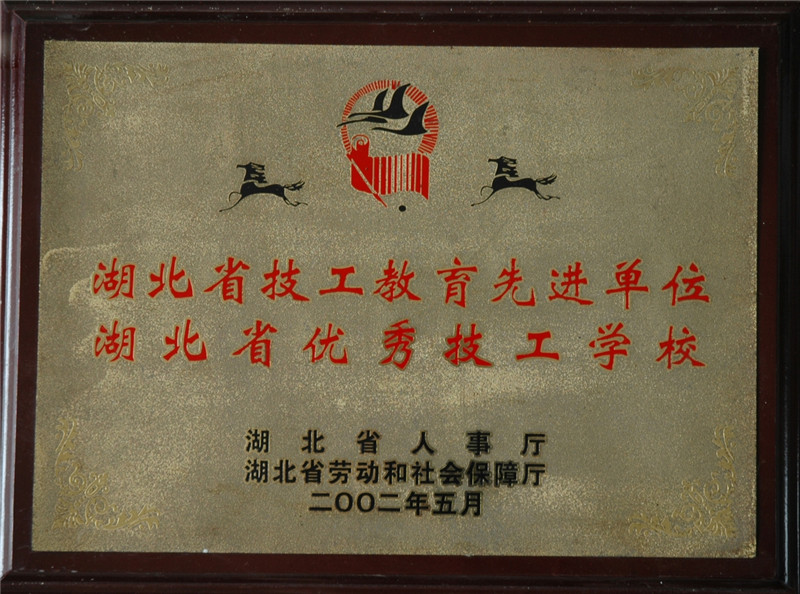 湖北省技工教育先进单位
湖北省优秀技工学校
湖北省人事厅
湖北省劳动和社会保障厅
二〇〇二年五月